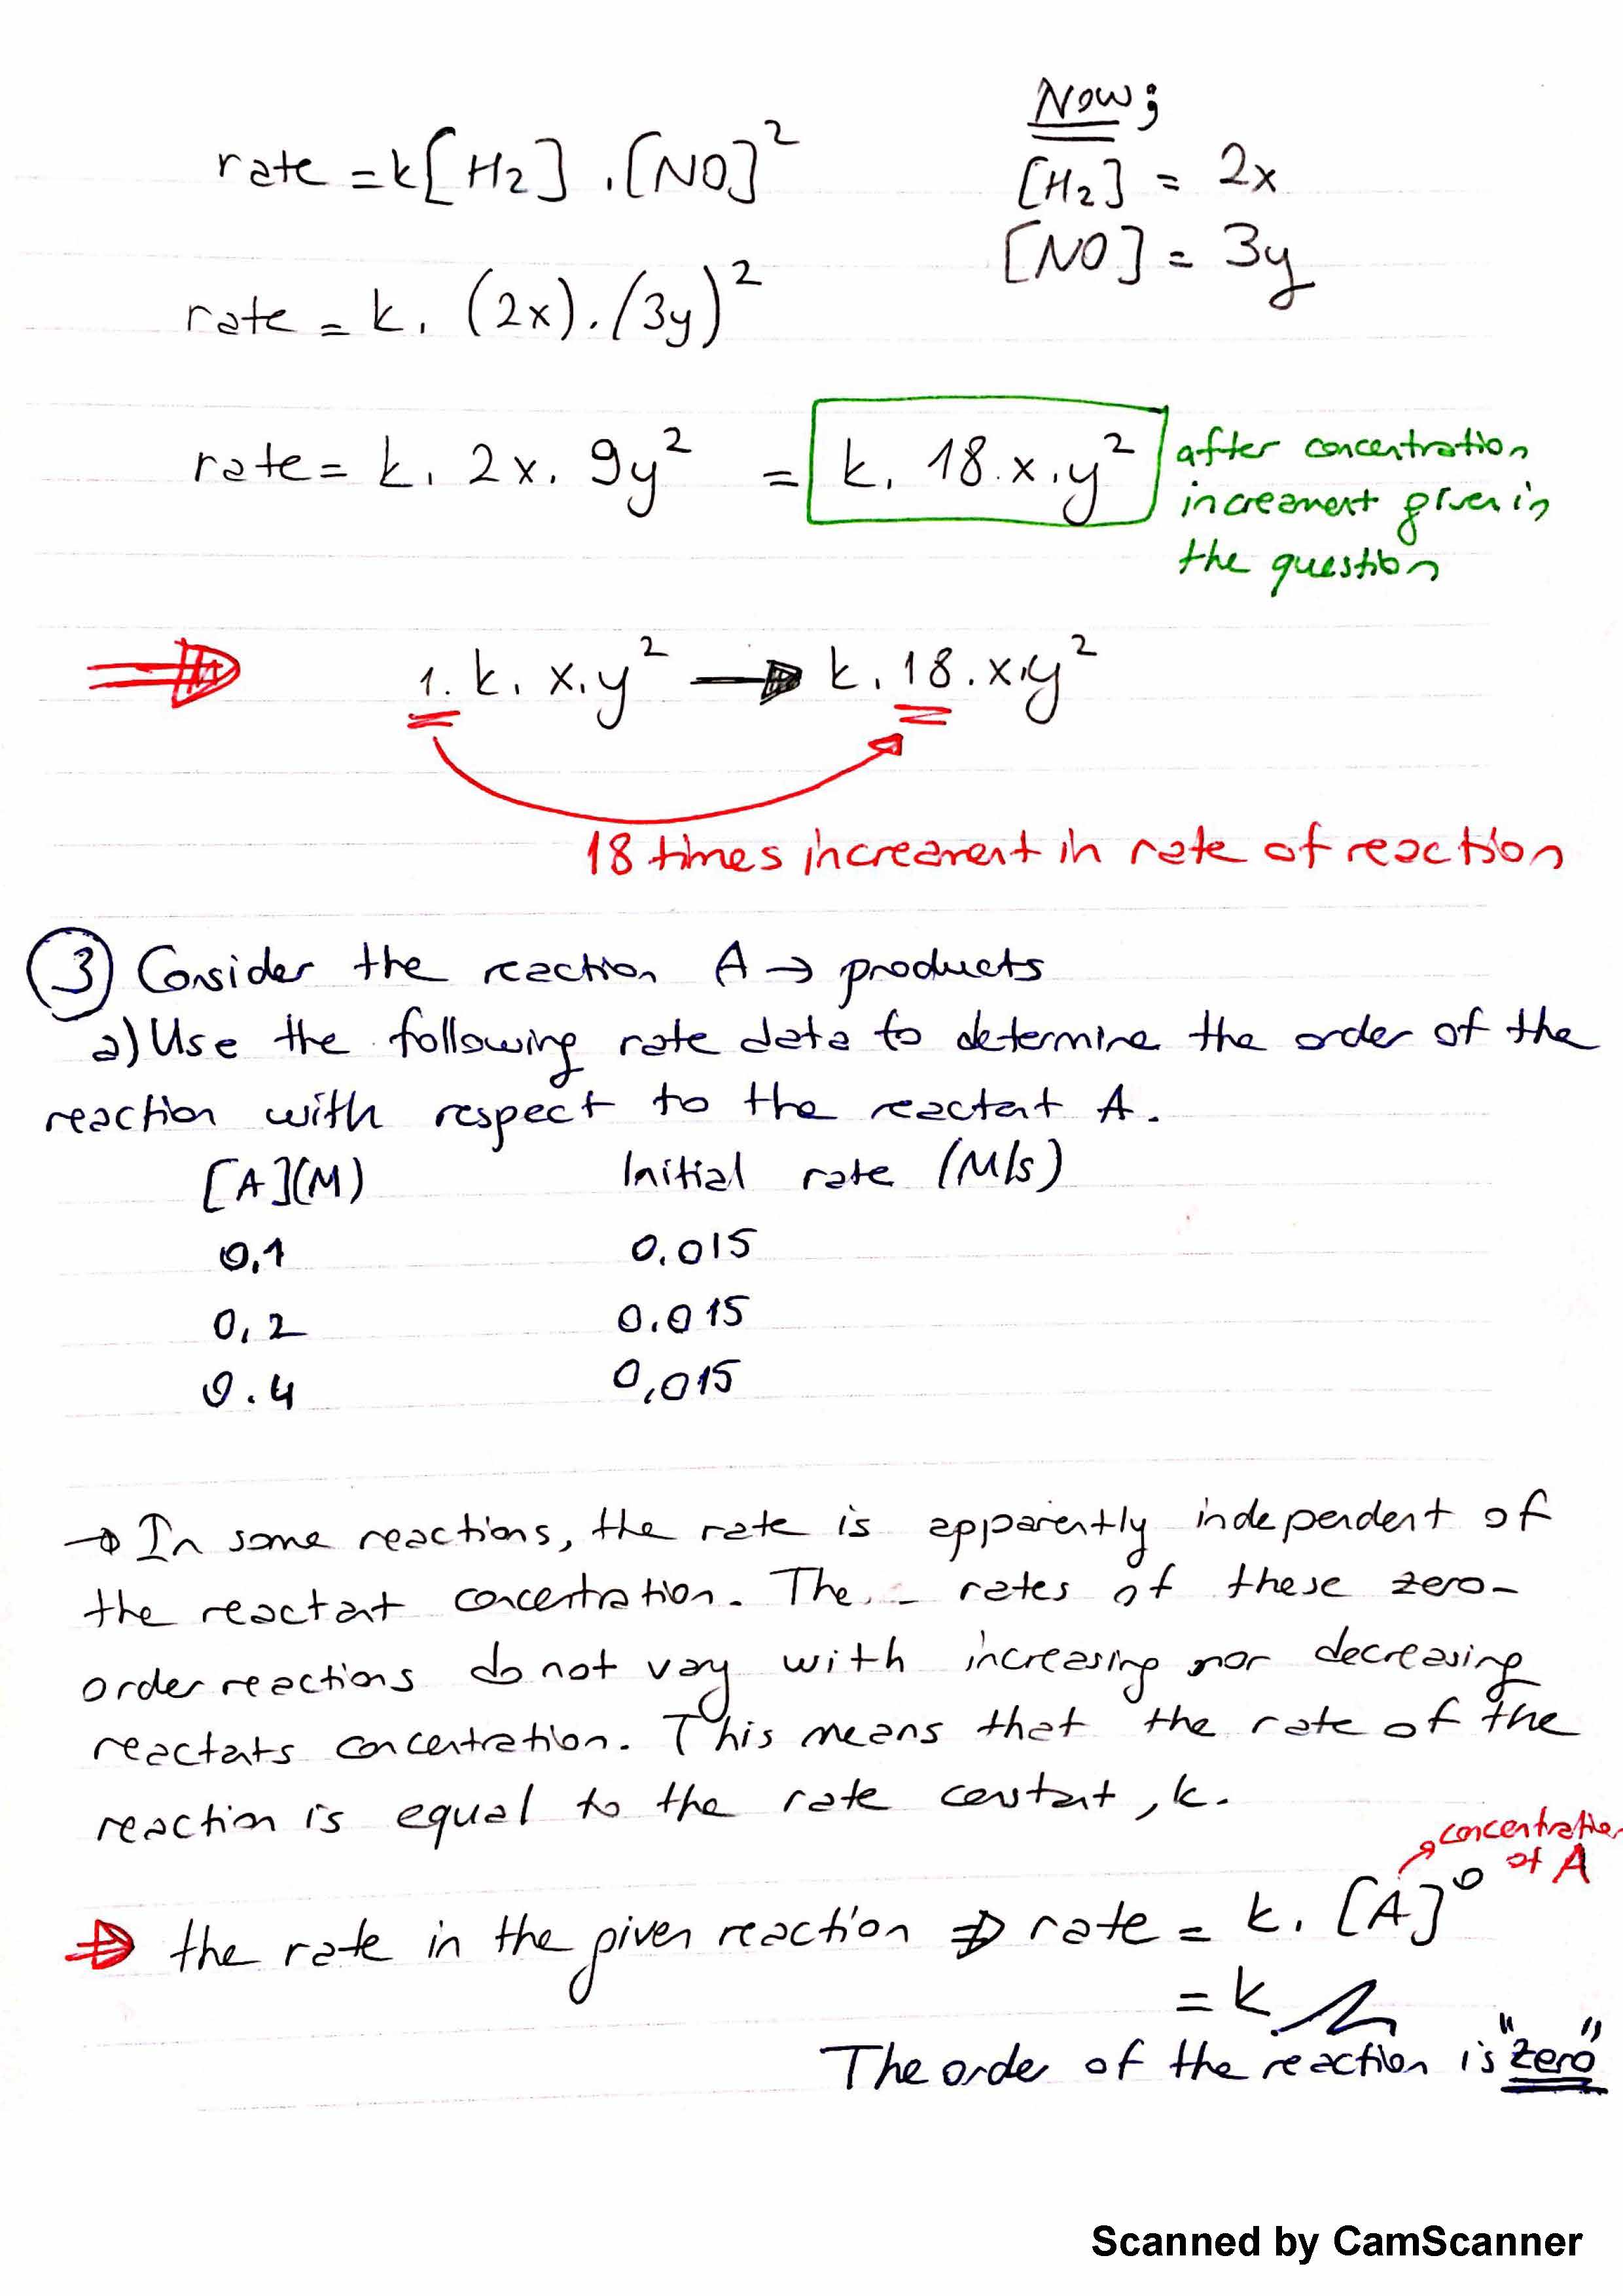 Now;
rate = k[H2] . [NO]²
[H2] = 2x
[NO] = 3y
rate = k. (2x). (3y)²
rate = k. 2x. 9y² = k. 18.x.y²
after concentration
increament given in
the question
1. k. x.y² → k. 18. x.y²
18 times increament in rate of reaction
3) Consider the reaction A → products
a) Use the following rate data to determine the order of the
reaction with respect to the reactant A.
[A](M) Initial rate (M/s)
0,1 0.015
0,2 0.015
0.4 0,015
→ In some reactions, the rate is apparently independent of
the reactant concentration. The rates of these zero-
order reactions do not vary with increasing nor decreasing
reactants concentration. This means that the rate of the
reaction is equal to the rate constant, k.
concentration
of A
⇒ the rate in the given reaction ⇒ rate = k. [A]⁰
= k
The order of the reaction is "zero"
Scanned by CamScanner